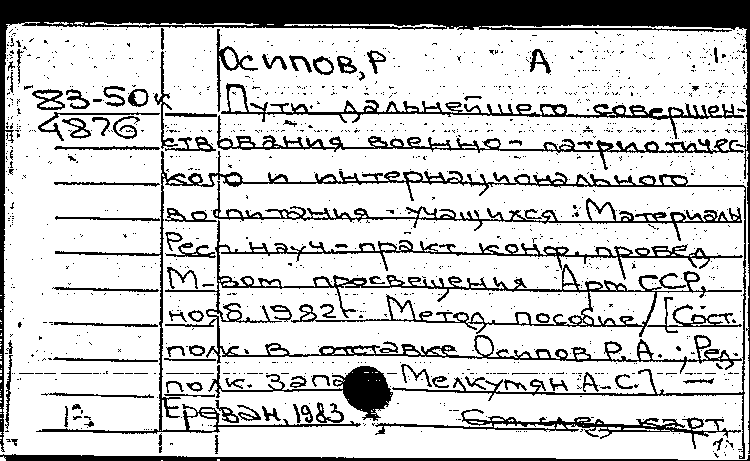 Осипов, Р А 1.
83-50к Пути дальнейшего совершен-
4876 ствования военно-патриотичес
кого и интернационального
воспитания учащихся: Материалы
Респ. науч.-практ. конф., провед
М-вом просвещения Арм ССР,
нояб. 1982 г. Метод. пособие / [Сост.
полк. в отставке Осипов Р.А.; Ред.
полк. запа Мелкумян А.С.]. —
Ереван, 1983. См. след. карт.